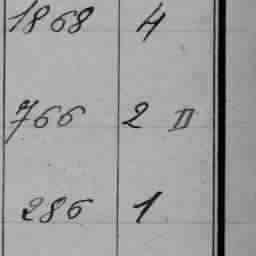 1868 4
766 2 II
286 1